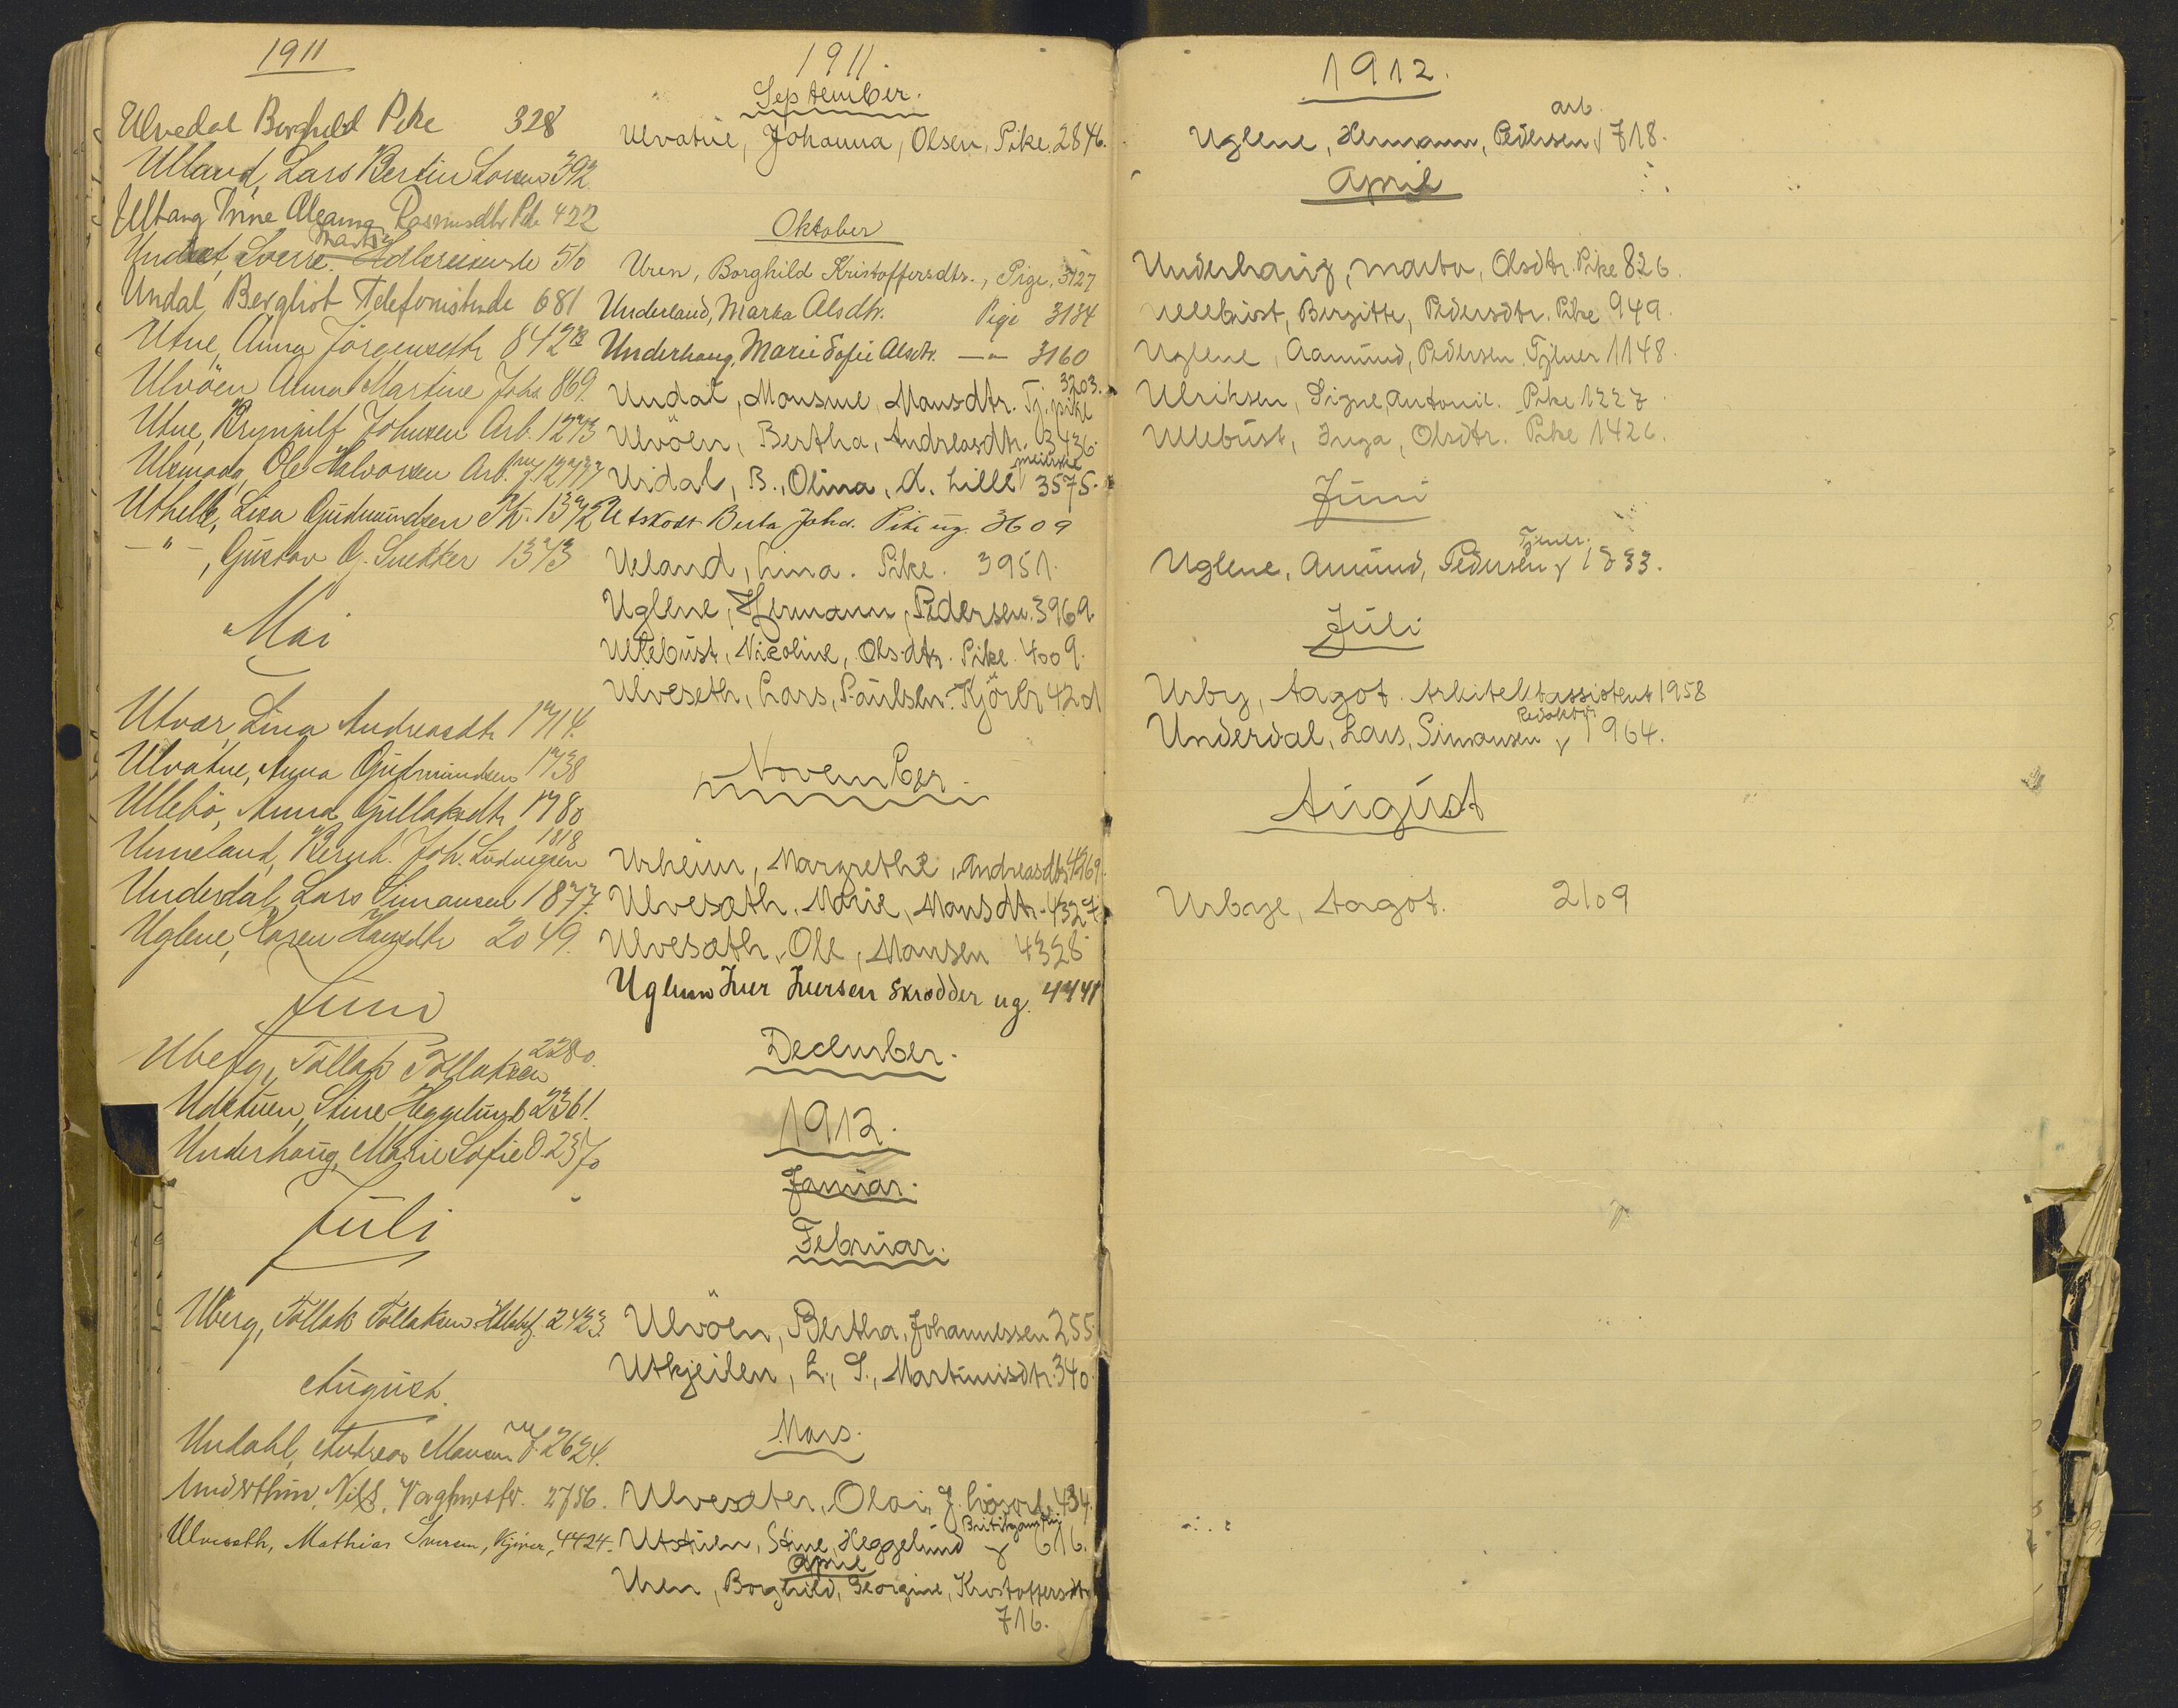 1911
Ulvedal Borghild Pike 328
Ulland, Lars Bertin Larsen 392
Ulltang Trine Rasmusdtr Pike 422
Undset, Sverre Martin 510
Undal, Bergliot Telefonistinde 681
Utne, Anna Jörgensdtr 842
Ulvöen Anna Martine Johs 869.
Utne, Brynjulf Johnsen Arb. 1293
Ole Halvorsen Arb.
Uthelle, Lisa Gudmundsen
— " —, Gustav G. Snekker
Mai
Utvær, Lina Andreasdtr 1714.
Ulvatne, Anna Gudmundsen 1738
Ullebö, Anna Gullaksdtr 1780
Unneland, Bernh. Joh. Ludvigsen 1818
Underdal, Lars Simonsen 1877.
Uglene, Karen Hansdtr 2049.
Juni
Uberg, Tollak Tollaksen 2280.
Stine Heggelund 2361.
Underhaug, Marie Sofie O. 2370
Juli
Uberg, Tollak Tollaksen 2423.
August.
Undahl, Andreas Monsen 2624.
Nils, 2756.
Ulvesæth, Mathias Iversen, Kjører, 4424.
1911.
September.
Ulvatne, Johanna, Olsen, Pike. 2846.
Oktober
Uren, Borghild Kristoffersdtr., Pige, 3127
Underland, Marta Olsdtr. Pige 3134
Underhaug, Marie Sofie Olsdtr. — " — 3160
Undal, Monsine, Monsdtr. Tj. pike 3203.
Ulvöen, Bertha, Andreasdtr. 3436.
Uidal, B., Olina, A. Lille meierske 3575.
Utskodt Berta Johs. Pike ug. 3609
Ueland, Lina. Pike. 3951.
Uglene, Hermann, Pedersen. 3969
Ullebust, Nicoline, Ols.dtr. Pike. 4009.
Ulveseth, Lars, Paulsen. Kjörer
November.
Urheim, Margrethe, Andreasdtr.
Ulvesæth, Marie, Monsdtr. 4327.
Ulvesæth, Ole, Monsen 4328
Iver Iversen Skrodder ug. 4441
December.
1912.
Januar.
Februar.
Ulvöen, Bertha, Johannessen 255.
Utkjeilen, L., S., Martinusdtr. 340.
Mars.
Ulvesæter, Olai, J. 434.
Utstuen, Stine, Heggelund 616.
April
Uren, Borghild, Georgine, Kristoffersdtr
716.
1912.
Uglene, Hermann, Pedersen, arb. 718.
April
Underhaug, Marta, Olsdtr. Pike 826.
Ullebust, Bergitte, Pedersdtr. Pike 949.
Uglene, Aamund, Pedersen. Tjener 1148.
Ulriksen, Signe, Antonie. Pike 1227
Ullebust, Inga, Olsdtr. Pike 1426.
Juni
Uglene, Amund, Pedersen Tjener. 1833.
Juli
Urby, Aagot. Arkitektassistent 1958
Underdal, Lars, Simonsen Redaktör 1964.
August
Urbye, Aagot. 2109